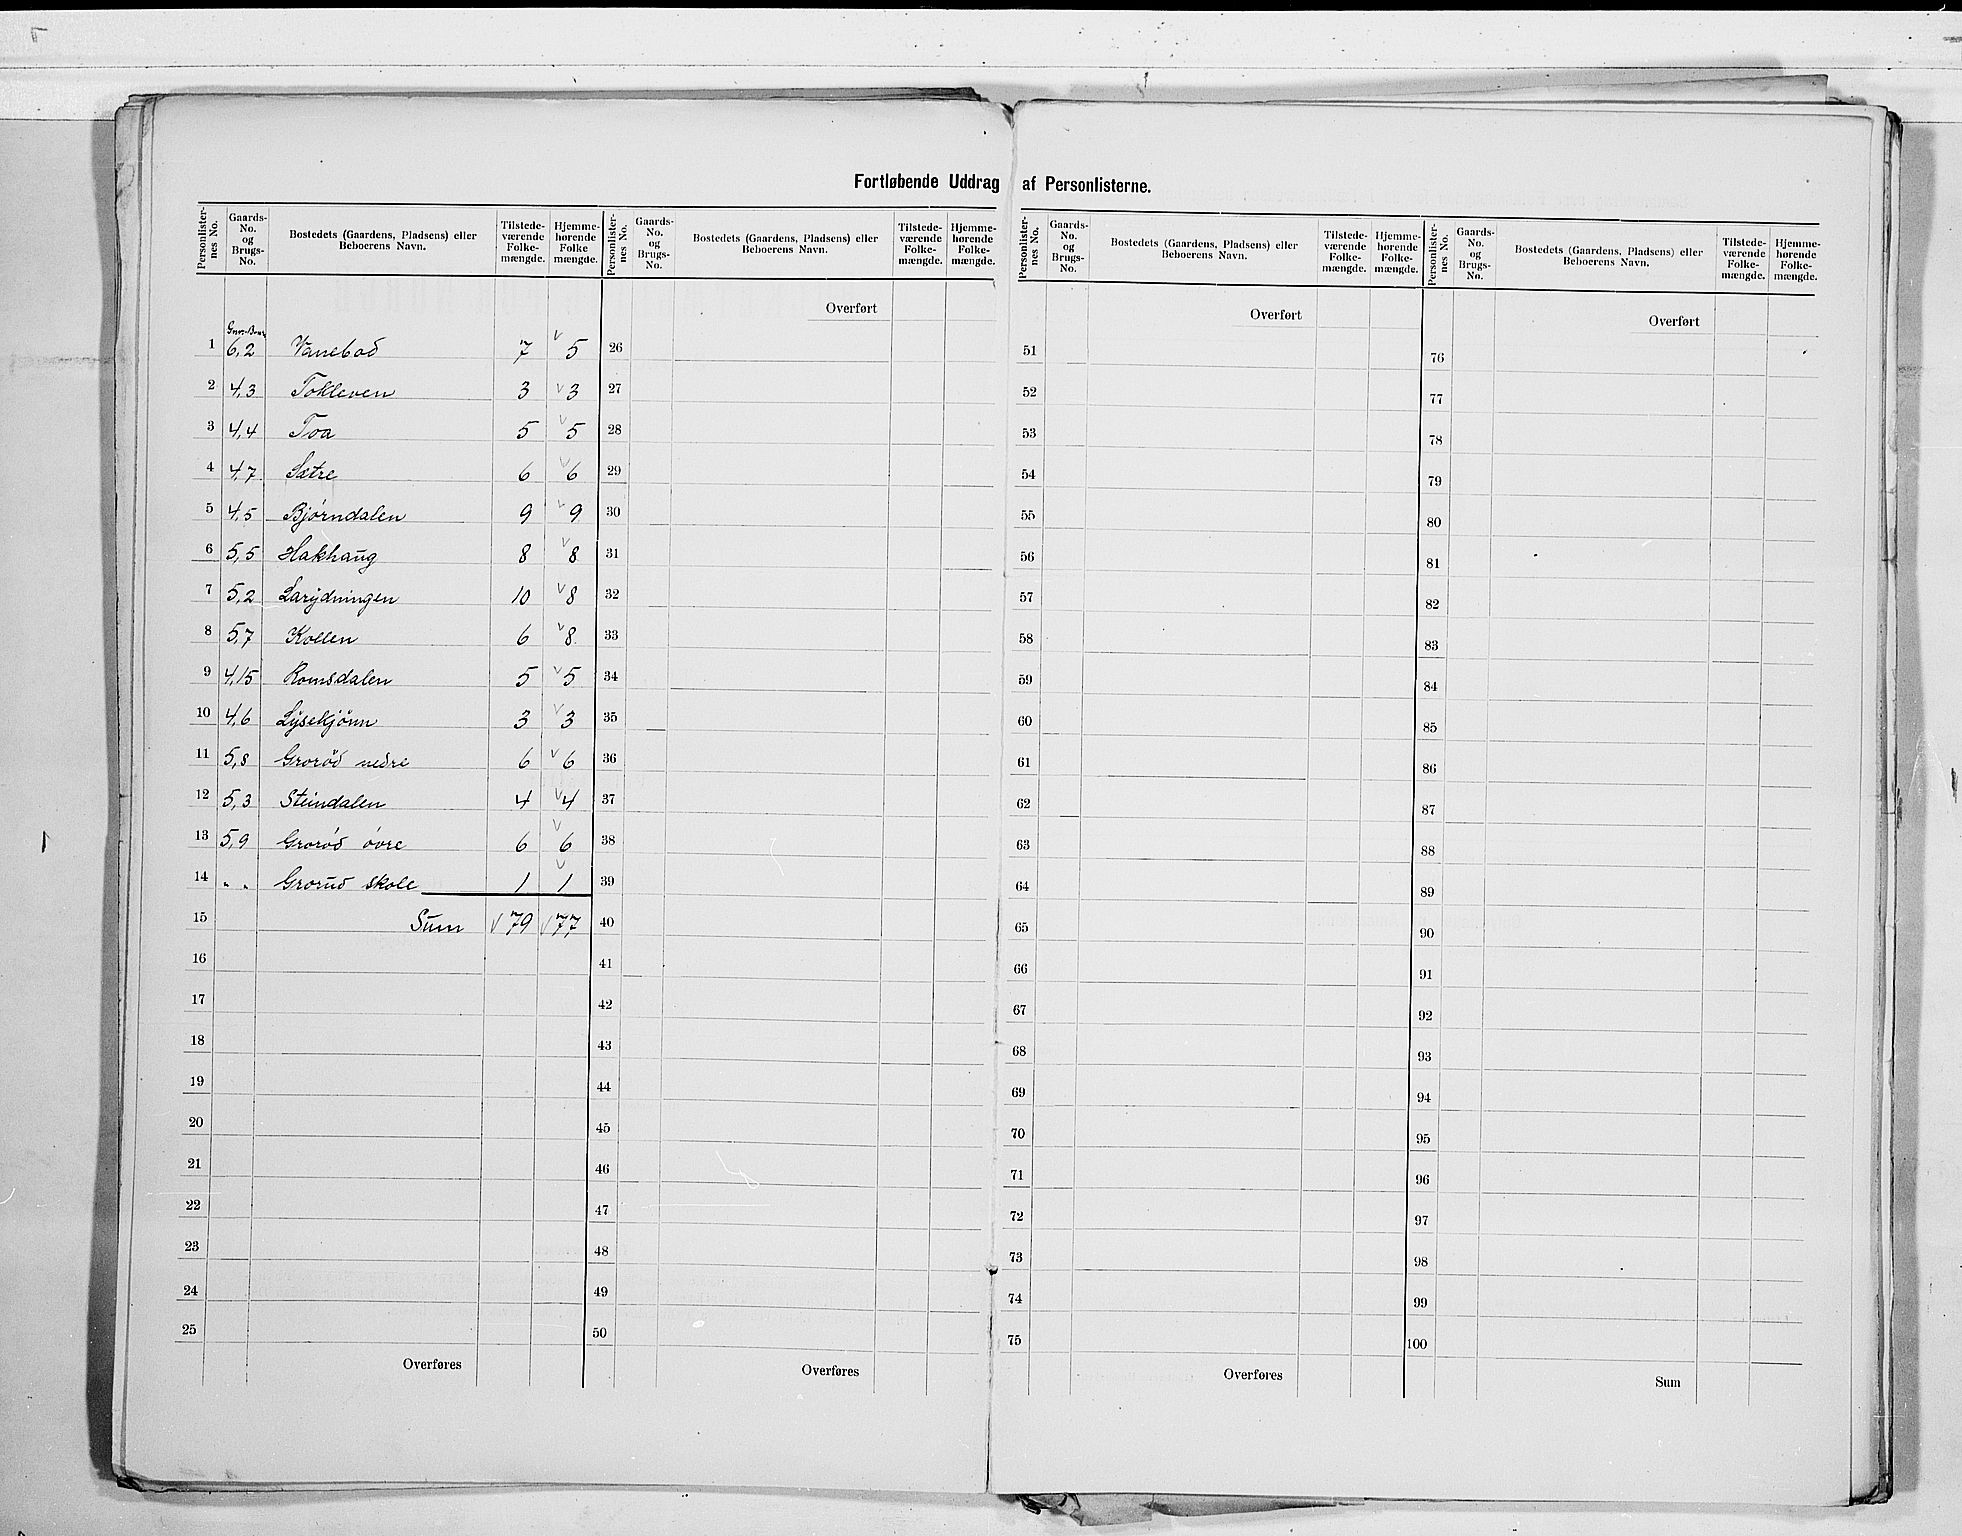 Fortløbende Uddrag af Personlisterne.
Personlisternes No. | Gaards-No. og Brugs-No. | Bostedets (Gaardens, Pladsens) eller Beboerens Navn. | Tilstedeværende Folkemængde. | Hjemmehørende Folkemængde.
Personlisternes No. | Gaards-No. og Brugs-No. | Bostedets (Gaardens, Pladsens) eller Beboerens Navn. | Tilstedeværende Folkemængde. | Hjemmehørende Folkemængde.
Personlisternes No. | Gaards-No. og Brugs-No. | Bostedets (Gaardens, Pladsens) eller Beboerens Navn. | Tilstedeværende Folkemængde. | Hjemmehørende Folkemængde.
Personlisternes No. | Gaards-No. og Brugs-No. | Bostedets (Gaardens, Pladsens) eller Beboerens Navn. | Tilstedeværende Folkemængde. | Hjemmehørende Folkemængde.
1 6,2 Vanebod 7 5
2 4,3 Tokleven 3 3
3 4,4 Toa 5 5
4 4,7 Sætre 6 6
5 4,5 Bjørndalen 9 9
6 5,5 Hakhaug 8 8
7 5,2 Larydningen 10 8
8 5,7 Kollen 6 8
9 4,15 Romsdalen 5 5
10 4,6 Lysekjönn 3 3
11 5,8 Grorød nedre 6 6
12 5,3 Steindalen 4 4
13 5,9 Grorød övre 6 6
14 " " Grorud skole 1 1
15 Sum 79 77
16
17
18
19
20
21
22
23
24
25
Overføres
Overført
26
27
28
29
30
31
32
33
34
35
36
37
38
39
40
41
42
43
44
45
46
47
48
49
50
Overføres
Overført
51
52
53
54
55
56
57
58
59
60
61
62
63
64
65
66
67
68
69
70
71
72
73
74
75
Overføres
Overført
76
77
78
79
80
81
82
83
84
85
86
87
88
89
90
91
92
93
94
95
96
97
98
99
100
Sum